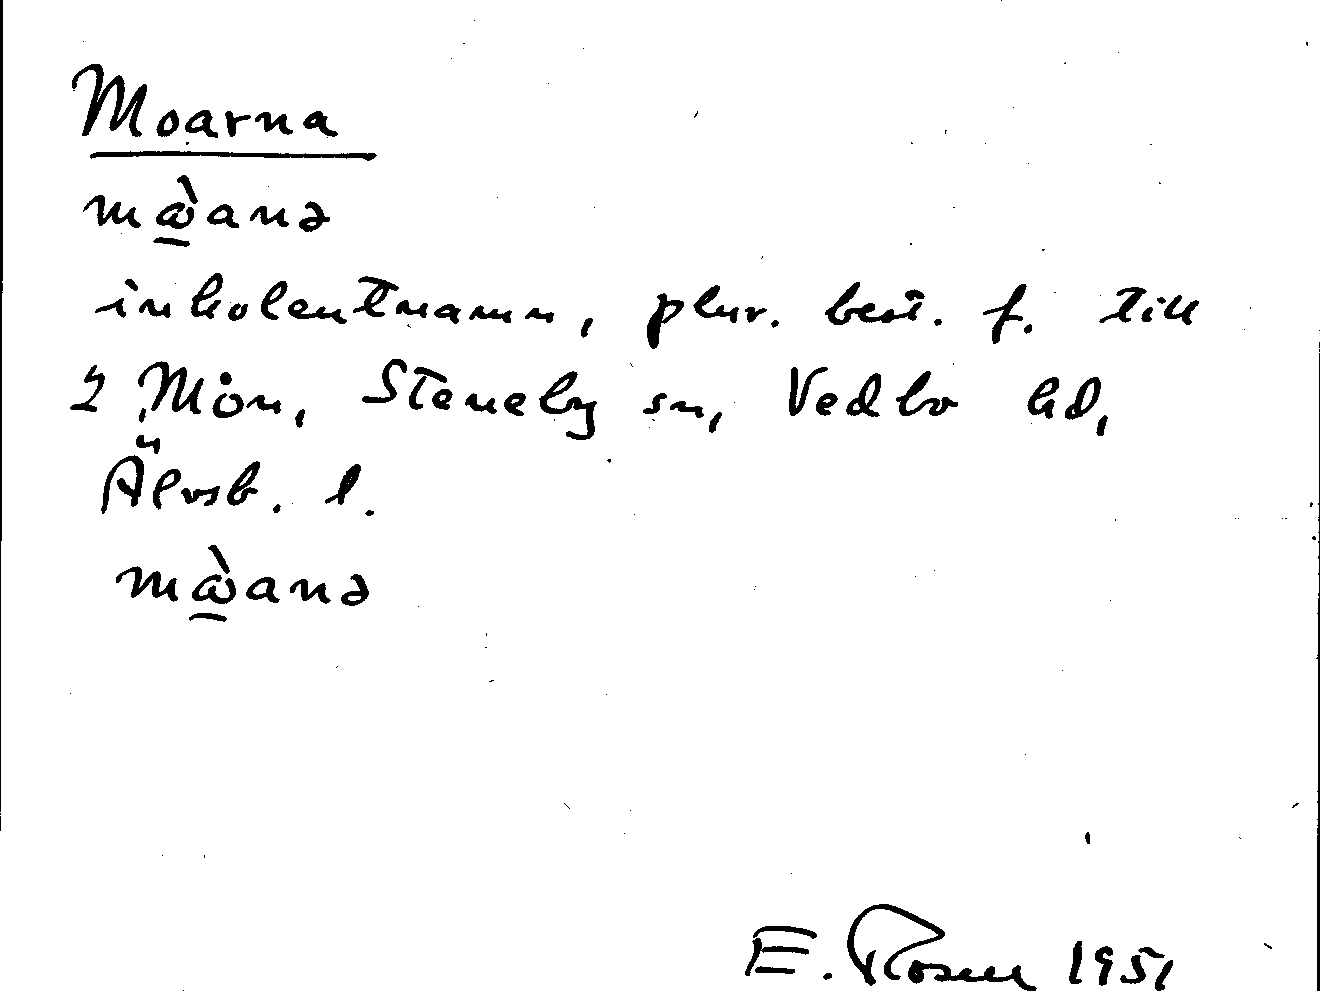 Moarna
mὼ̲anə
inbolentnamn, plur. best. f. till
2 Mon, Steneby sn, Vedbo hd,
Älvsb. l.
mὼ̲anə
E. Rosell 1951